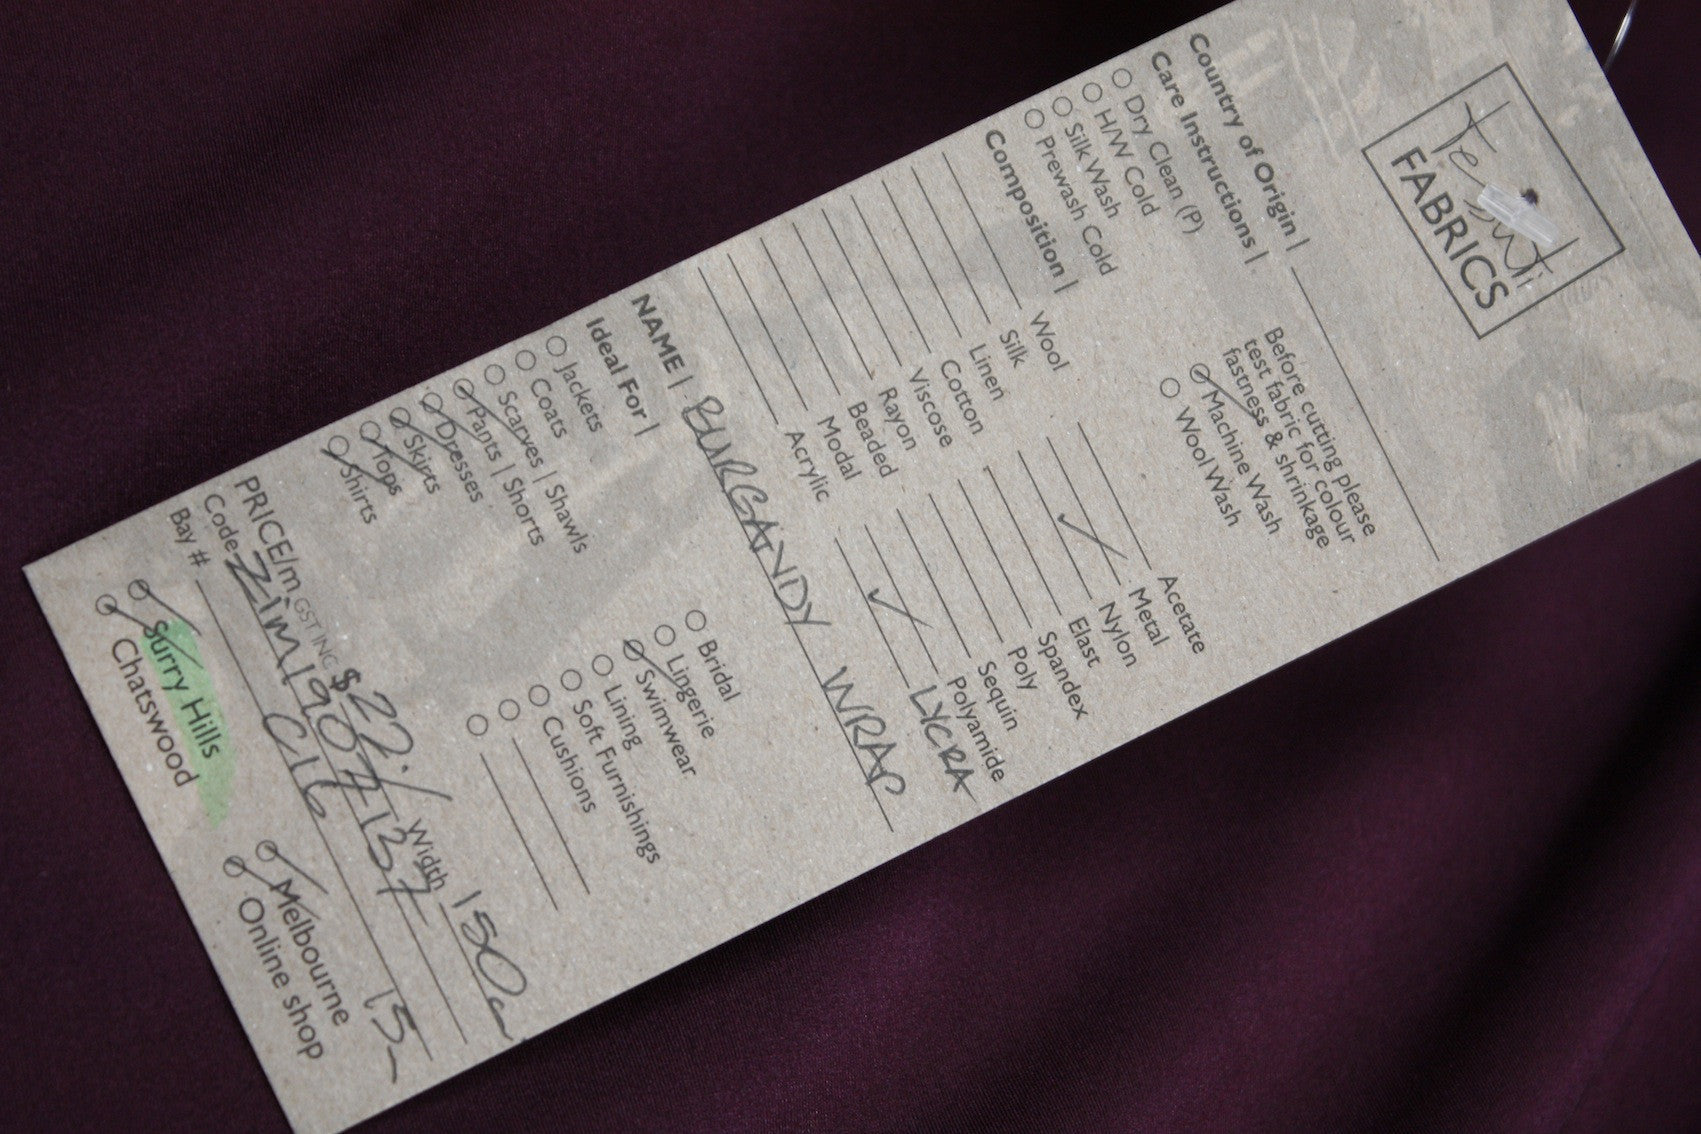 FABRICS
Country of Origin |
Care Instructions |
Dry Clean (P)
H/W Cold
Silk Wash
Prewash Cold
Machine Wash
Wool Wash
Before cutting please
test fabric for colour
fastness & shrinkage
Composition |
Wool
Silk
Linen
Cotton
Viscose
Rayon
Beaded
Modal
Acrylic
Acetate
Metal
✓ Nylon
Elast
Spandex
Poly
Sequin
Polyamide
✓ LYCRA
NAME | BURGANDY WRAP
Ideal For |
Jackets
Coats
Scarves | Shawls
Pants | Shorts
Dresses
Skirts
Tops
Shirts
Bridal
Lingerie
Swimwear
Lining
Soft Furnishings
Cushions
PRICE/m GST INC $22./ Width 150cm
Code Zim1907137
Bay # C16 15-
Surry Hills
Chatswood
Melbourne
Online shop